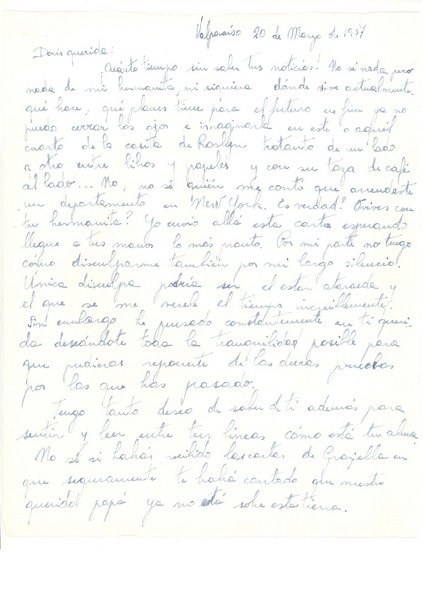 Valparaíso 20 de Marzo de 1957
Doris querida:
Cuánto tiempo sin saber tus noticias! No sé nada, pero
nada de mi hermanita, ni siquiera dónde vive actualmente,
qué hace, qué planes tiene para el futuro en fin ya no
puedo cerrar los ojos e imaginarla en este o aquel
cuarto de la casita de Roslyn trotando de un lado
a otro entre libros y papeles y con su taza de café
al lado... No, no sé quién me contó que arrendaste
un departamento en New York. Es verdad? Vives con
tu hermanita? Yo envío allá esta carta esperando
llegue a tus manos lo más pronto. Por mi parte no tengo
cómo disculparme también por mi largo silencio.
Única disculpa podría ser el estar atareada y
el que se me vuela el tiempo increíblemente.
Sin embargo he pensado constantemente en ti queri-
da deseándote toda la tranquilidad posible para
que pudieras reponerte de las duras pruebas
por las que has pasado.
Tengo tanto deseo de saber de ti además para
sentir y leer entre tus líneas cómo está tu alma.
No sé si habás recibido las cartas de Graziella en
que seguramente te habá contado que nuestro
querido papá ya no está sobre esta tierra.